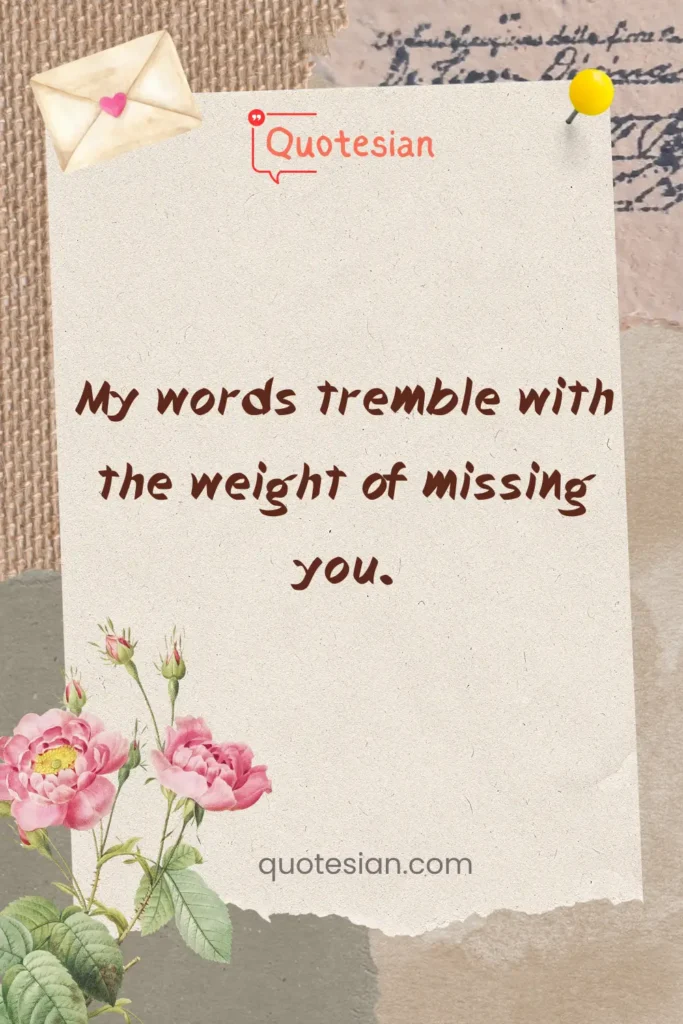 Quotesian
My words tremble with
the weight of missing
you.
quotesian.com